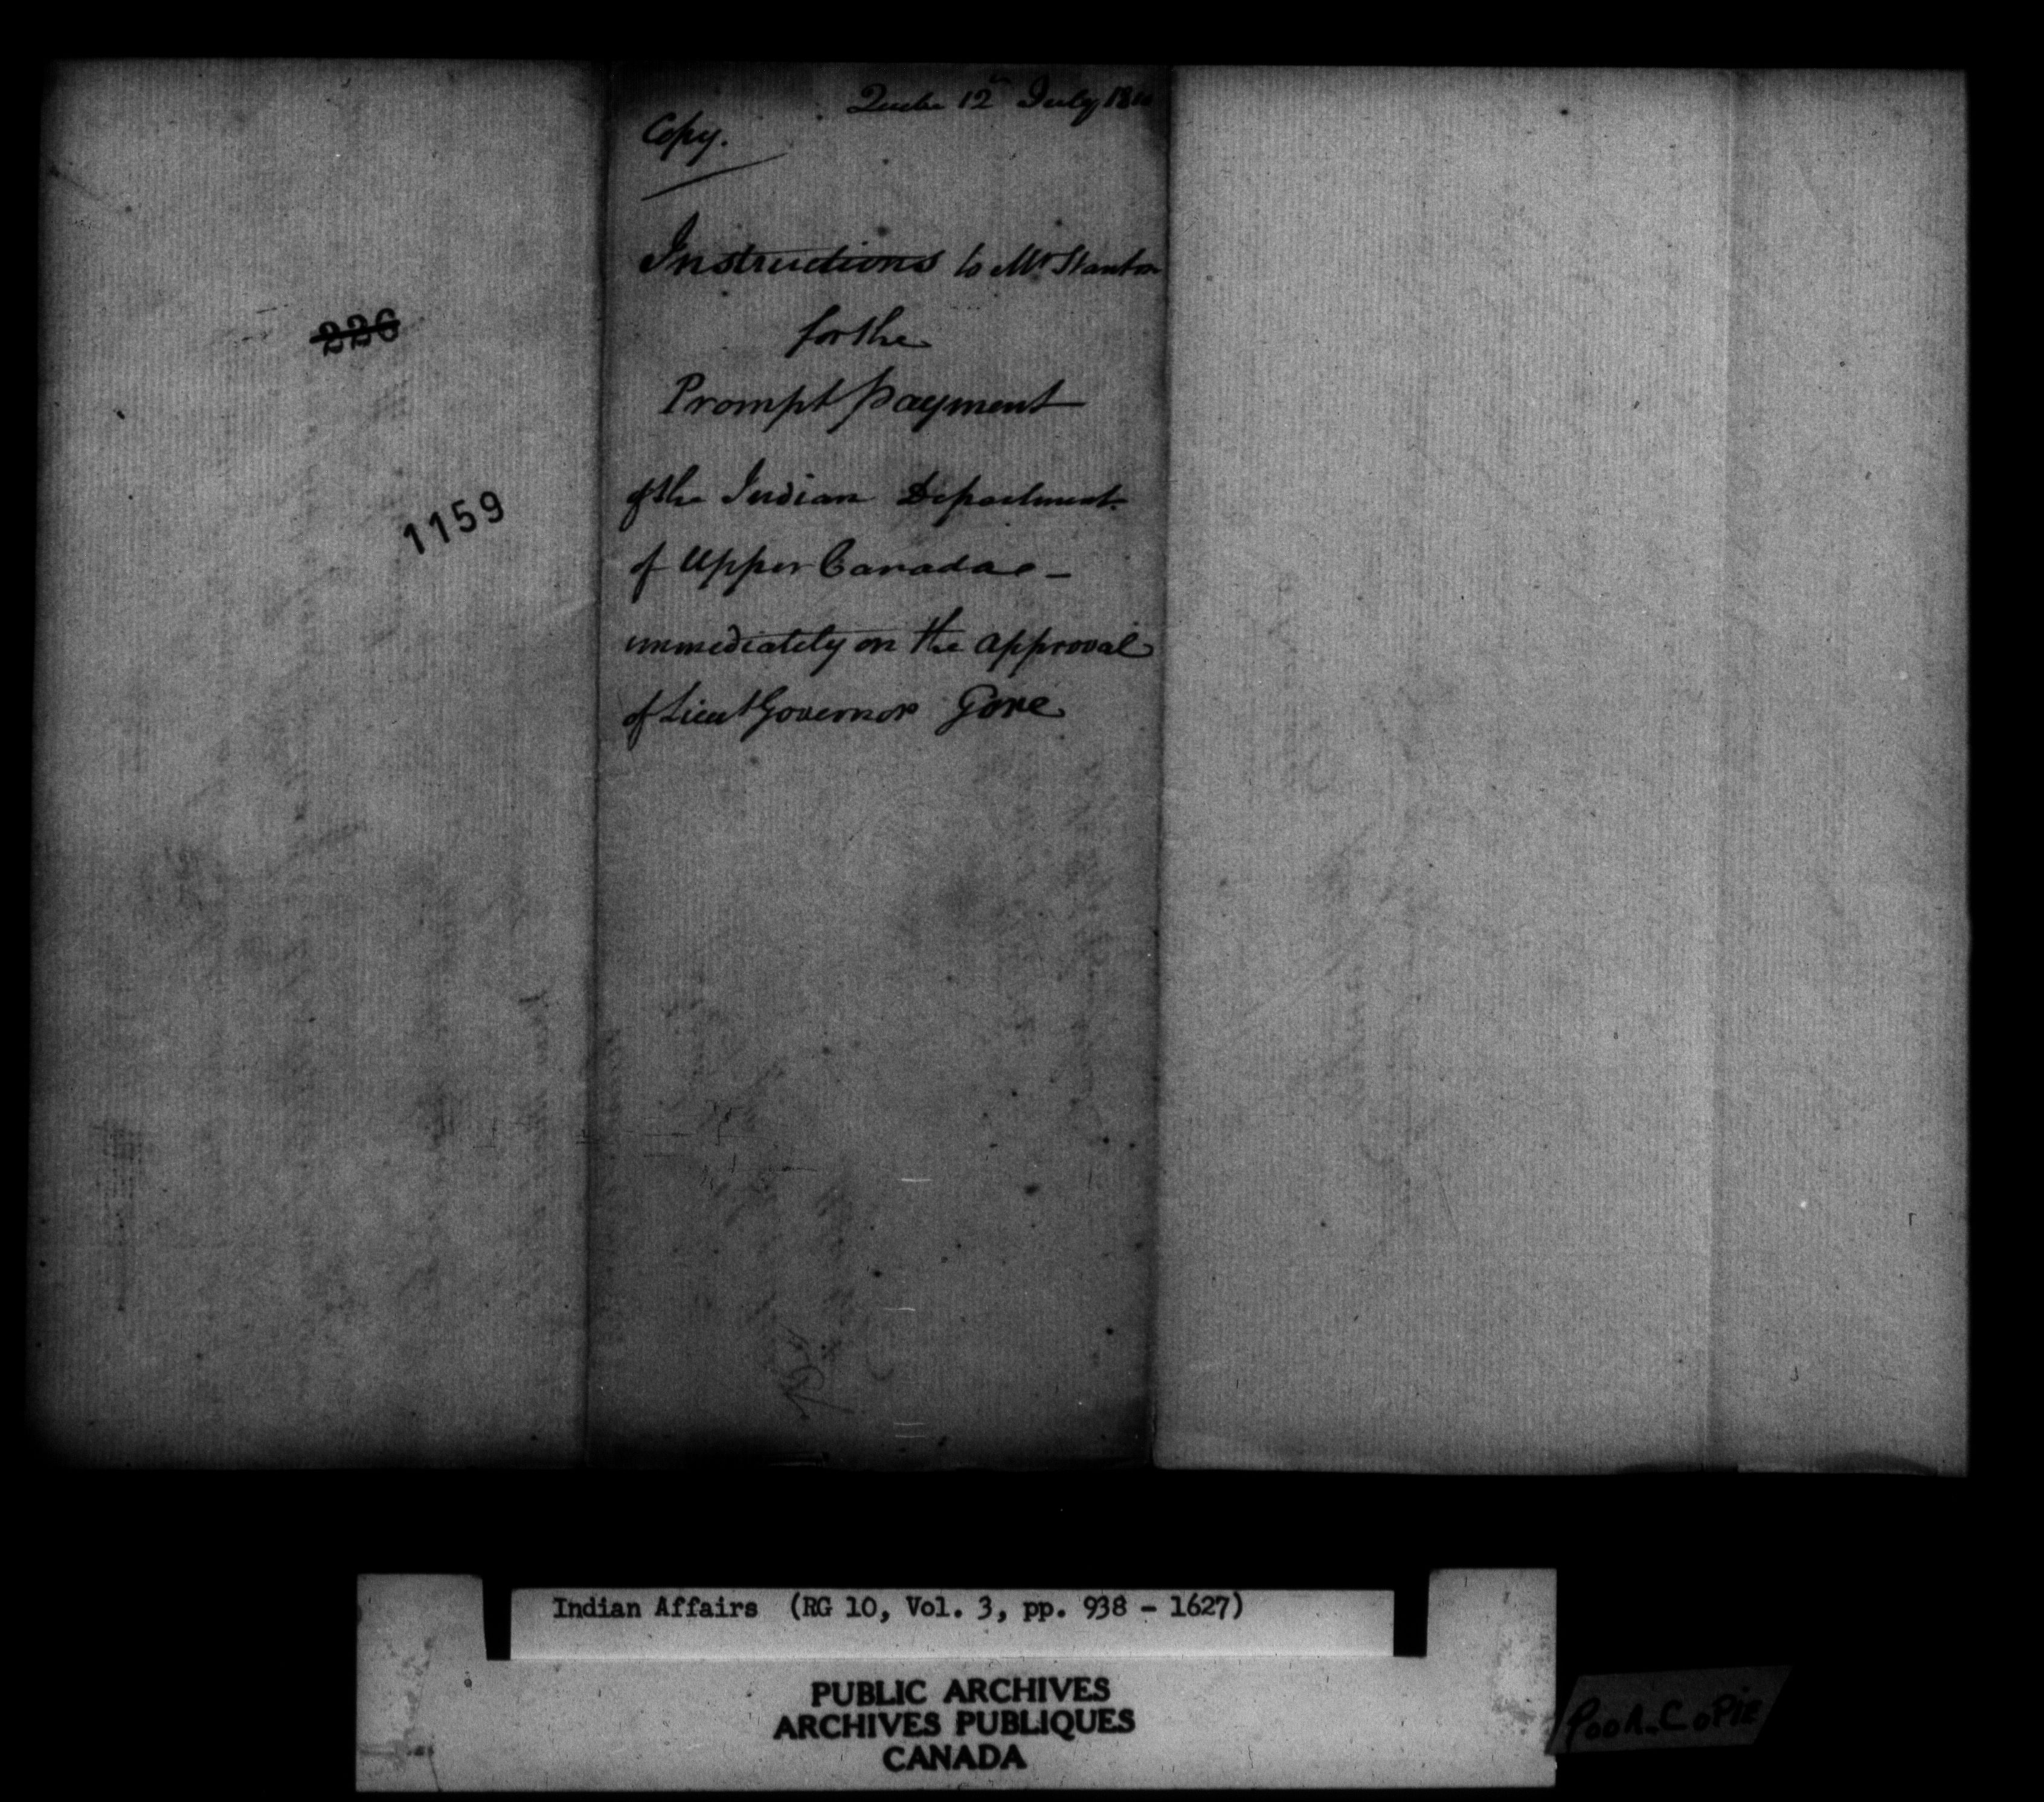 226
1159
12th July
Copy.
Instructions to Mr Stanton
for the
Prompt payment
of the Indian Department
of Upper Canada -
immediately on the approval
of Lieut Governor Gore
Indian Affairs (RG 10, Vol. 3, pp. 938 - 1627)
PUBLIC ARCHIVES
ARCHIVES PUBLIQUES
CANADA
POOR COPIE